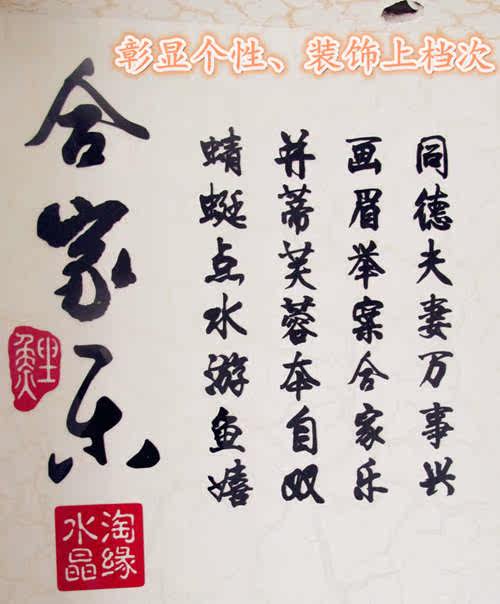 彰显个性、装饰上档次
合家乐
蜻蜓点水游鱼嬉
并蒂芙蓉本自双
画眉举案合家乐
同德夫妻万事兴
鲤
淘缘
水晶